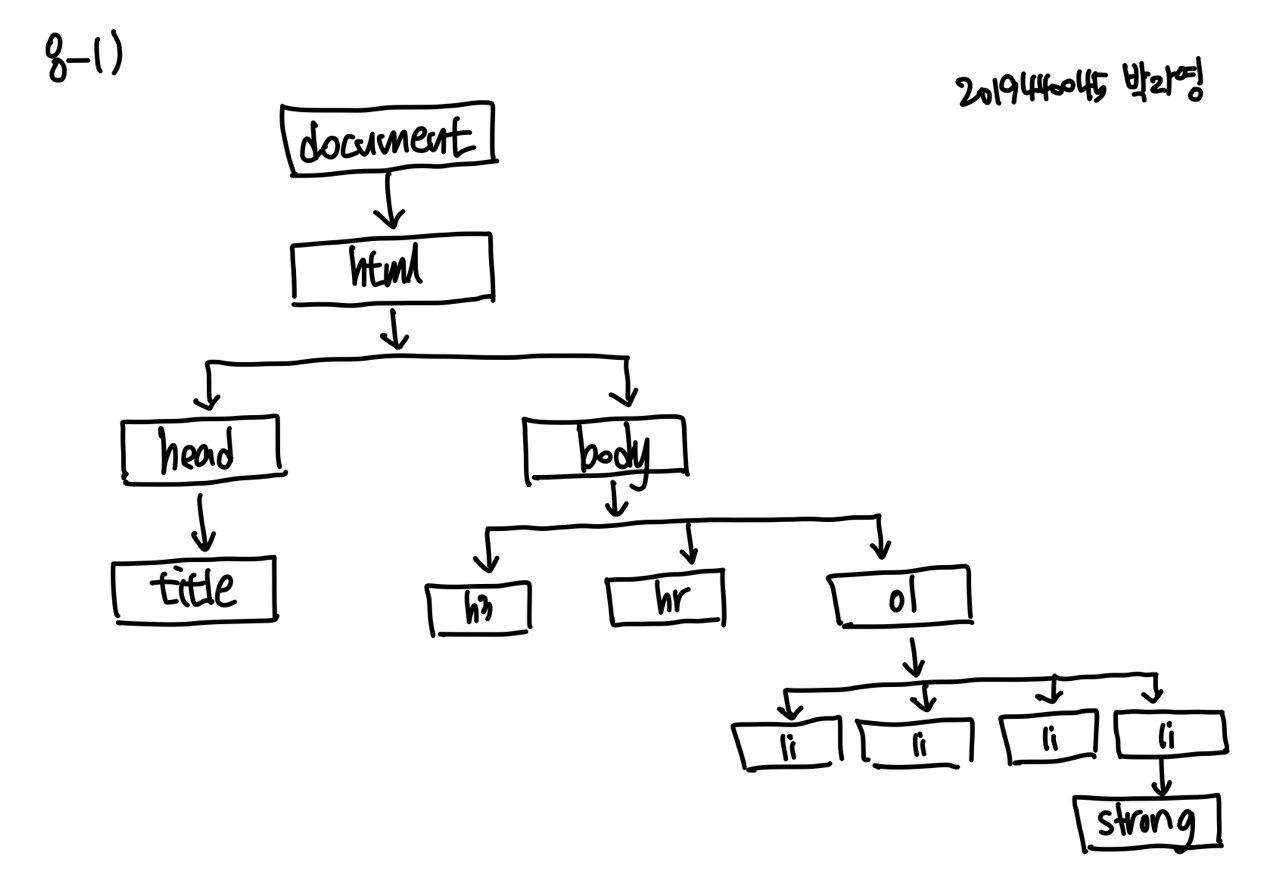 8-1)
201944045 박라영
document
html
head body
title h3 hr ol
li li li li
strong